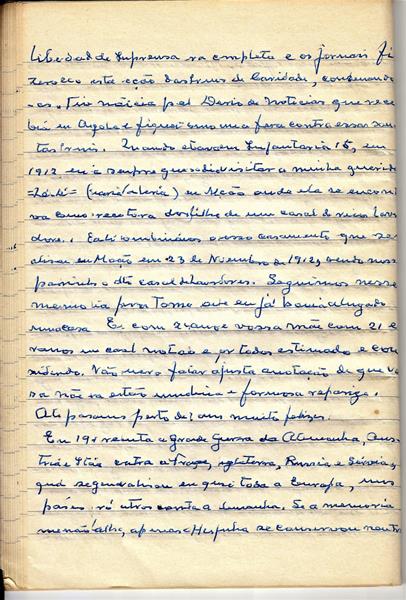 Liberdade de Imprensa era completa e os jornais fi
zeram eco esta acção das Irmãs de Caridade, condenando
-as. Tive notícia pel Diario de Noticias que rece
bia em Angola e fiquei como uma fera contra essas san
tas Irmãs. Quando estava em Infantaria 15, em
1912 eu ia sempre que podia visitar a minha querida
(Maria Valeria) em Mação onde ela se encont
va como rectora dos filhos de um casal de ricos lavra
dores. E ali combinámos o nosso casamento que se
alisou em Mação em 23 de Novembro de 1912, sendo nossos
padrinhos o dito casal de lavradores. Seguimos nesse
mesmo dia para Tomar onde eu já havia alugado
uma casa. Eu com 29 anos e vossa mãe com 21 e
ramos um casal notado e por todos estimado e con
siderado. Não era favor a justa anotação de que vos
sa mãe era então uma linda e formosa rapariga.
Ali passamos perto de 2 anos muito felizes.
Em 1914 rebenta a grande Guerra da Alemanha, Aus
tria e Itália contra a França, Inglaterra, Russia e Sérvia,
que se generalizou em quasi toda a Europa, uns
países a outros contra a Alemanha. Se a memoria
me não falha, apenas a Hespanha se conservou neutra